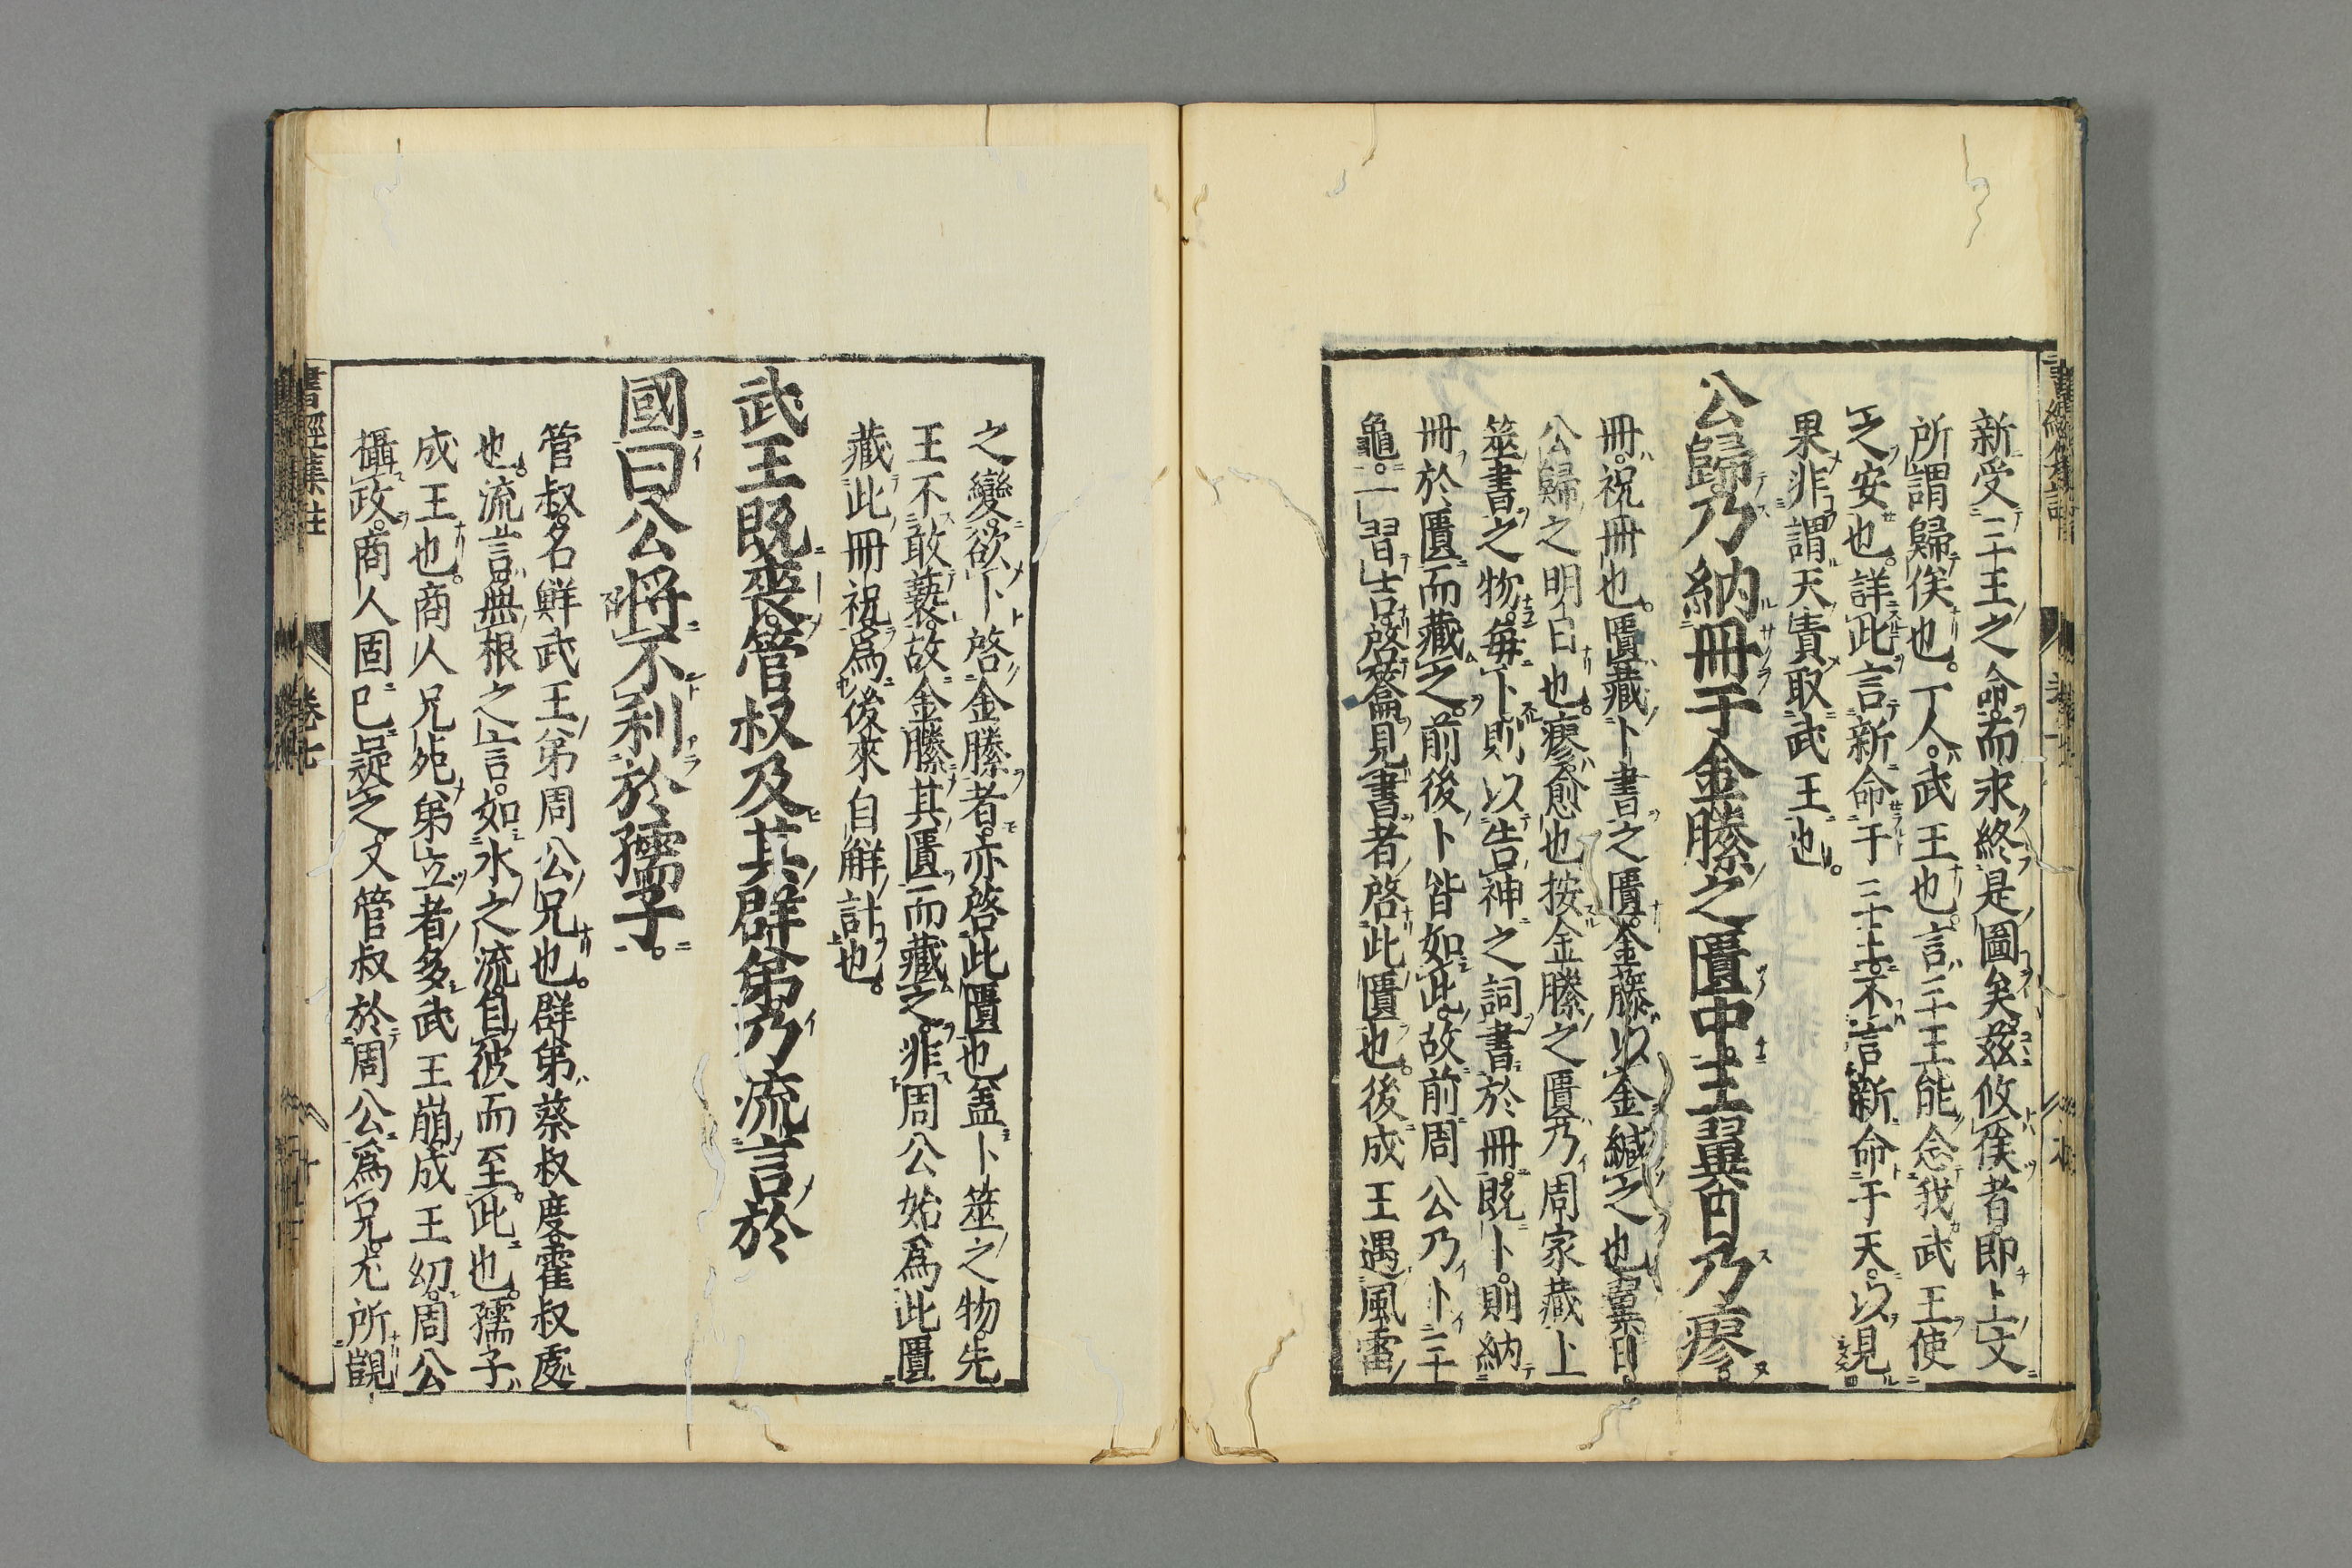 新受三王之命而求終是圖矣茲攸俟者即上文
所謂歸俟也一人武王也言三王能念我武王使
之安也詳此言新命于三王不言新命于天以見
果非謂天責取武王也
公歸乃納冊于金縢之匱中王翼日乃瘳
冊祝冊也匱藏卜書之匱金藤以金緘之也翼日
公歸之明日也瘳愈也按金縢之匱乃周家藏卜
筮書之物每卜則以告神之詞書於冊既卜則納
冊於匱而藏之前後卜皆如此故前周公乃卜三
龜一習吉啓籥見書者啓此匱也後成王遇風雷
之變欲卜啓金縢者亦啓此匱也蓋卜筮之物先
王不敢褻故金縢其匱而藏之非周公始為此匱
藏此冊祝為後來自解計也
武王既喪管叔及其群弟乃流言於
國曰公將不利於孺子
管叔名鮮武王弟周公兄也群弟蔡叔度霍叔處
也流言無根之言如水之流自彼而至此也孺子
成王也商人兄死弟立者多武王崩成王幼周公
攝政商人固已疑之又管叔於周公為兄尤所覬
書經集註 卷七